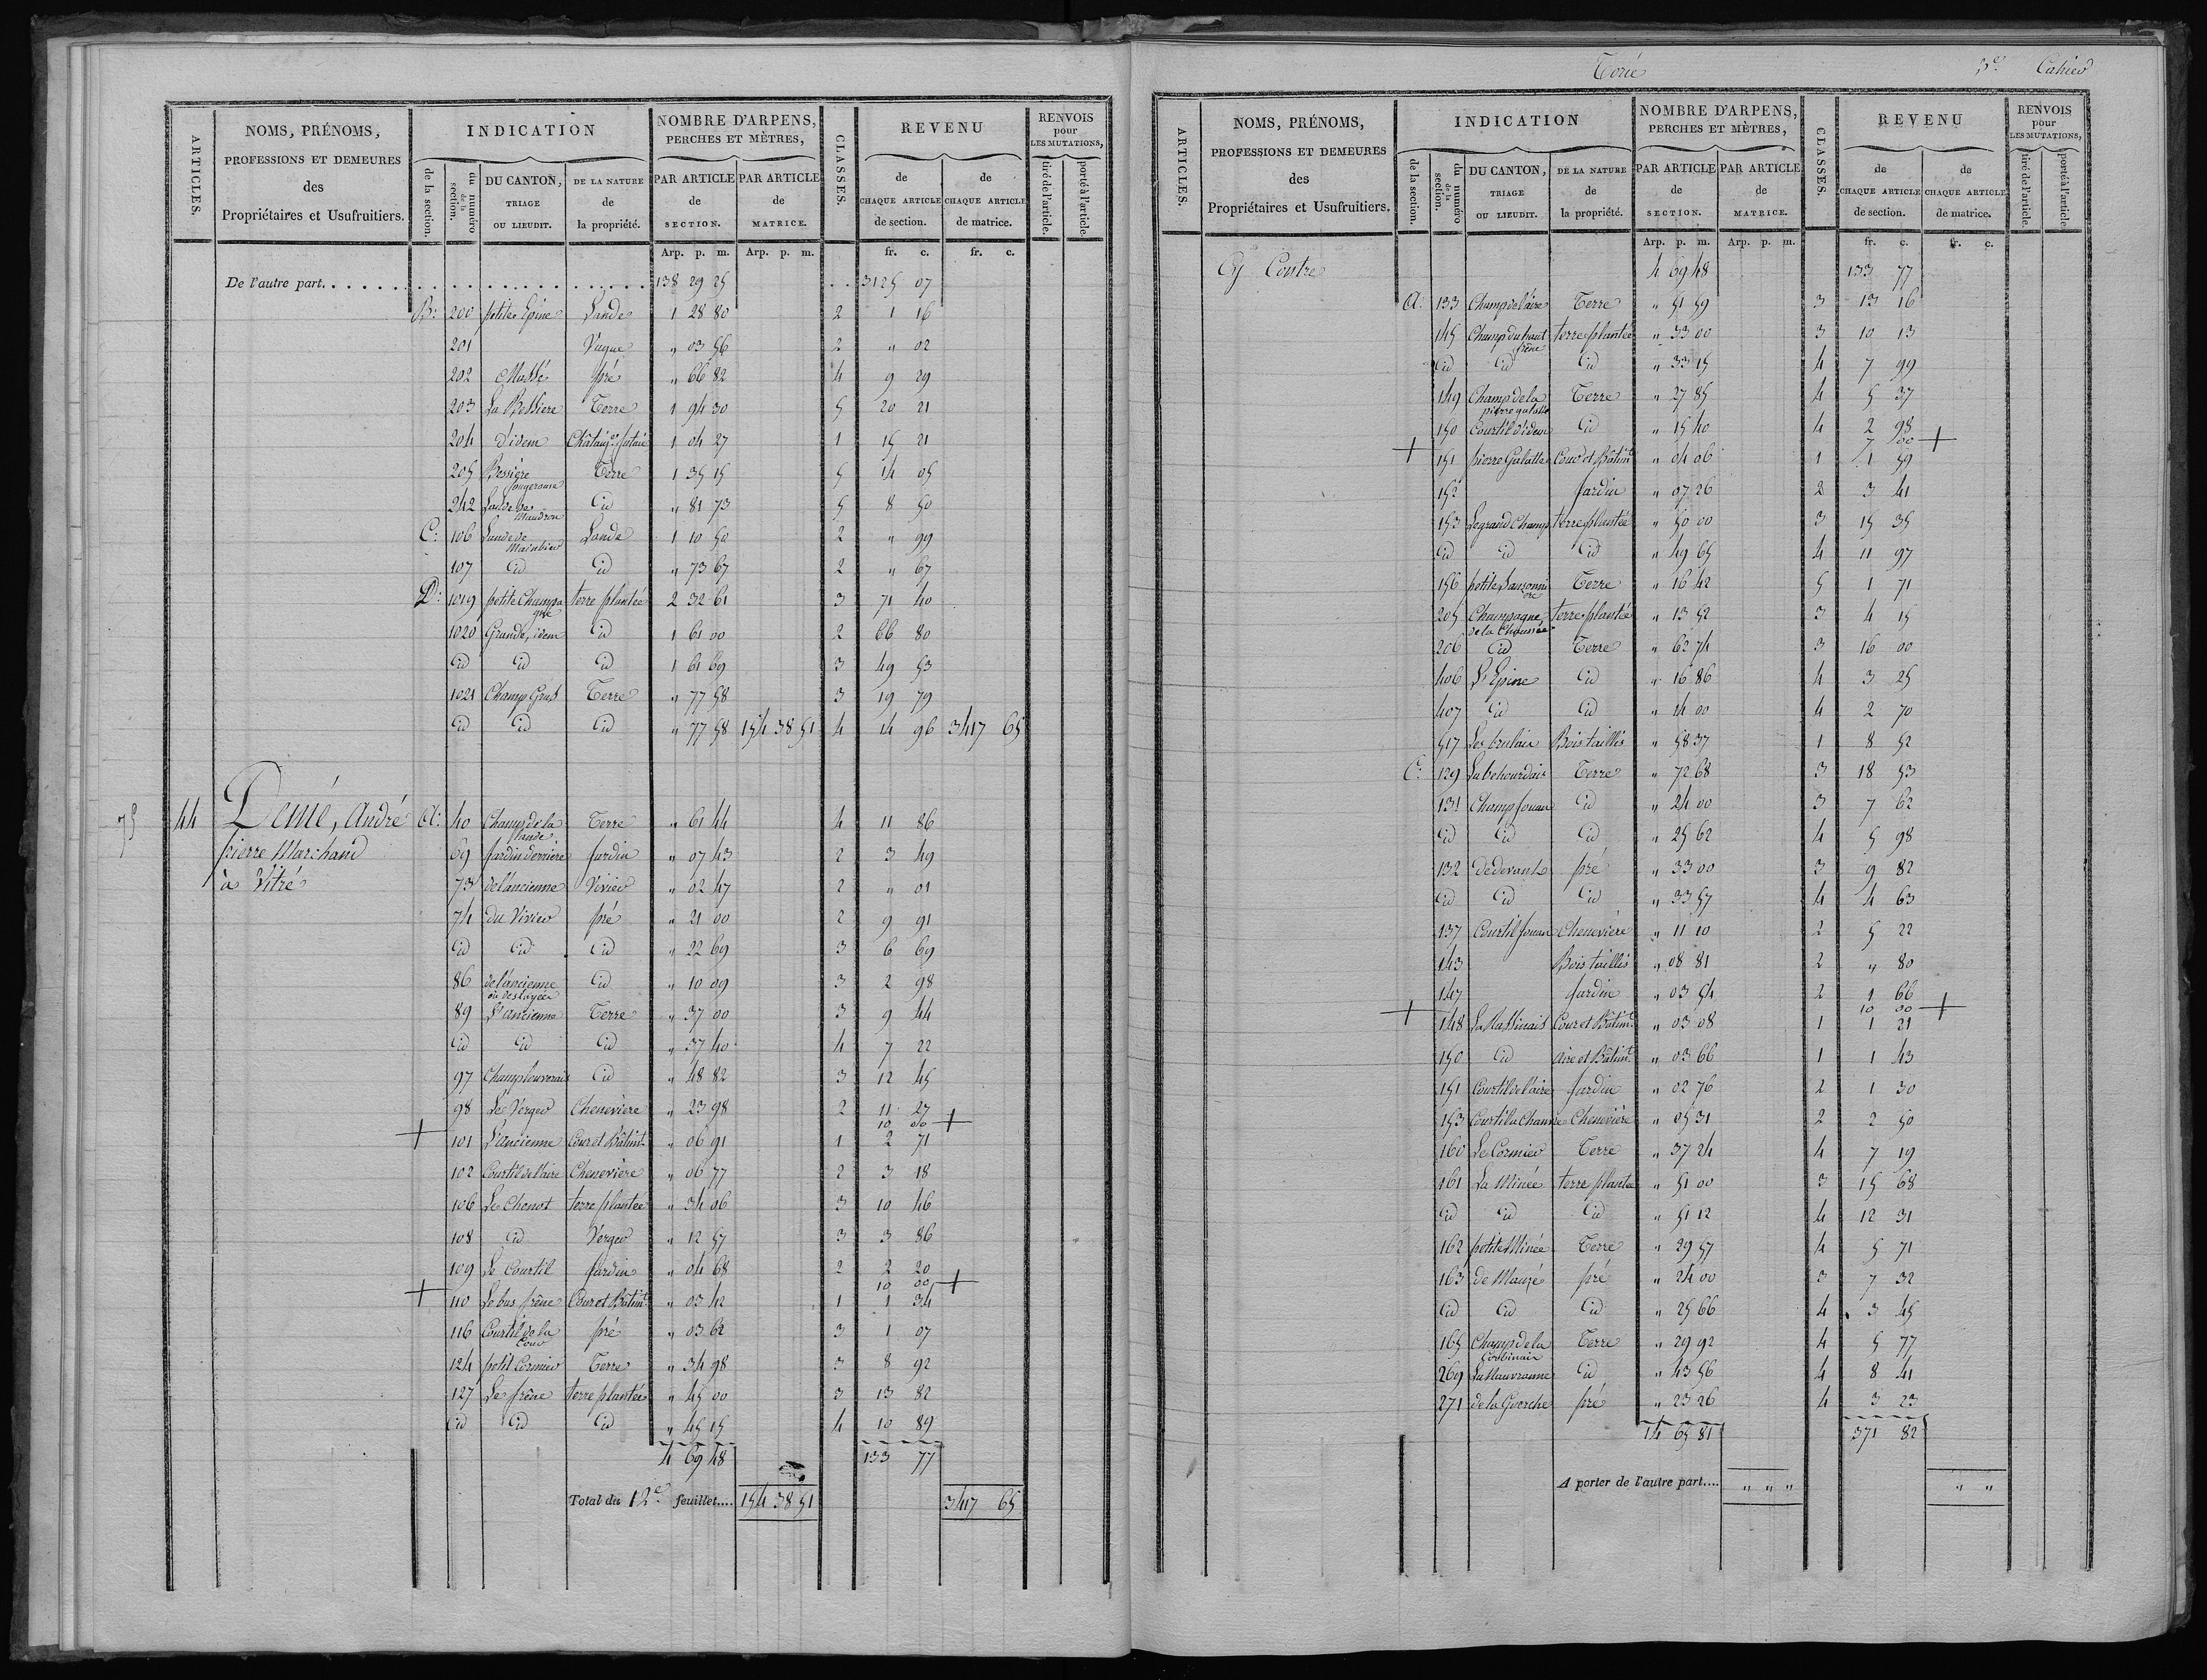 ARTICLES.
NOMS, PRÉNOMS,
PROFESSIONS ET DEMEURES
des
Propriétaires et Usufruitiers.
INDICATION
de la section.
du numéro de la section.
DU CANTON, TRIAGE OU LIEUDIT.
DE LA NATURE de la propriété.
NOMBRE D'ARPENS, PERCHES ET MÈTRES,
PAR ARTICLE de SECTION.
PAR ARTICLE de MATRICE.
CLASSES.
REVENU
de CHAQUE ARTICLE de section.
de CHAQUE ARTICLE de matrice.
RENVOIS pour LES MUTATIONS,
tiré de l'article.
porté à l'article.
Arp. p. m. Arp. p. m. fr. c. fr. c.
De l'autre part. 138 29 25 3125 07
B: 200 petite Epine Lande 1 28 80 2 1 16
201 Vague " 03 56 2 " 02
202 Massé pré " 66 82 4 9 29
203 La Bessiere Terre 1 94 30 5 20 21
204 d'idem Châtaig. futaie 1 04 27 1 15 21
205 Bessière fougerouse Terre 1 35 15 5 14 05
242 Lande de Maudron Id " 81 73 5 8 50
C: 106 Lande de Lande 1 10 50 2 " 99
107 Id Id " 73 67 2 " 67
D: 1019 petite Champagne terre plantée 2 32 61 3 71 40
1020 Grande, idem Id 1 61 00 2 66 80
Id Id Id 1 61 69 3 49 53
1021 Champ Gras Terre " 77 58 3 19 79
Id Id Id " 77 58 154 38 51 4 14 96 3417 65
75 44 Demé, André A: 40 Champ de la lande Terre " 61 44 4 11 86
pierre Marchand 69 Jardin derrière Jardin " 07 43 2 3 49
à Vitré 73 de l'ancienne Vivier " 02 47 2 " 01
74 du Vivier pré " 21 00 2 9 91
Id Id Id " 22 69 3 6 69
86 de l'ancienne ou des Id " 10 09 3 2 98
89 L'ancienne Terre " 37 00 3 9 44
Id Id Id " 37 40 4 7 22
97 Champ Id " 48 82 3 12 45
98 Le Verger Chenevière " 23 98 2 11 27
10 00 +
+ 101 L'ancienne Cour et Bâtimt. " 06 91 1 2 71
102 Courtil de l'aire Chenevière " 06 77 2 3 18
106 Le Chenot terre plantée " 34 06 3 10 46
108 Id Verger " 12 57 3 3 86
109 Le Courtil Jardin " 04 68 2 2 20
10 00 +
+ 110 Le bas frêne Cour et Bâtimt. " 03 42 1 1 34
116 Courtil de la Cour pré " 03 62 3 1 07
124 petit Cormier Terre " 34 98 3 8 92
127 Le frêne terre plantée " 45 00 3 13 82
Id Id Id " 45 15 4 10 89
4 69 48 133 77
Total du 12e. feuillet.... 154 38 51 3417 65
Torcé 3e. Cahier
ARTICLES.
NOMS, PRÉNOMS,
PROFESSIONS ET DEMEURES
des
Propriétaires et Usufruitiers.
INDICATION
de la section.
du numéro de la section.
DU CANTON, TRIAGE OU LIEUDIT.
DE LA NATURE de la propriété.
NOMBRE D'ARPENS, PERCHES ET MÈTRES,
PAR ARTICLE de SECTION.
PAR ARTICLE de MATRICE.
CLASSES.
REVENU
de CHAQUE ARTICLE de section.
de CHAQUE ARTICLE de matrice.
RENVOIS pour LES MUTATIONS,
tiré de l'article.
porté à l'article.
Arp. p. m. Arp. p. m. fr. c. fr. c.
Cy Contre 4 69 48 133 77
A: 133 Champ de l'aire Terre " 51 59 3 13 16
145 Champ du haut frêne terre plantée " 33 00 3 10 13
Id Id Id " 33 15 4 7 99
149 Champ de la pierre galatte Terre " 27 85 4 5 37
150 Courtil d'idem Id " 15 40 4 2 98
7 00 +
+ 151 pierre Galatte Cour et Bâtimt. " 04 06 1 1 59
152 Jardin " 07 26 2 3 41
153 Le grand Champ terre plantée " 50 00 3 15 35
Id Id Id " 49 65 4 11 97
156 petite Terre " 16 42 5 1 71
205 Champagne de la Chaussée terre plantée " 13 52 3 4 15
206 Id Terre " 62 74 3 16 00
406 L'Epine Id " 16 86 4 3 25
407 Id Id " 14 00 4 2 70
517 Les brulais Bois taillis " 58 37 1 8 52
C: 129 La behourdais Terre " 72 68 3 18 53
131 Champ Jouan Id " 24 00 3 7 62
Id Id Id " 25 62 4 5 98
132 de devant pré " 33 00 3 9 82
Id Id Id " 33 57 4 4 63
137 Courtil Jouan Chenevière " 11 10 2 5 22
143 Bois taillis " 08 81 2 " 80
147 Jardin " 03 54 2 1 66
10 00 +
+ 148 La Massinais Cour et Bâtimt. " 03 08 1 1 21
150 Id Aire et Bâtimt. " 03 66 1 1 43
151 Courtil de l'aire Jardin " 02 76 2 1 30
153 Courtil à Chanvre Chenevière " 05 31 2 2 50
160 Le Cormier Terre " 37 24 4 7 19
161 La Minée terre plantée " 51 00 3 15 68
Id Id Id " 51 12 4 12 31
162 petite Minée Terre " 29 57 4 5 71
163 de Mauzé pré " 24 00 3 7 32
Id Id Id " 25 66 4 3 45
165 Champ de la Corbinais Terre " 29 92 4 5 77
269 La Mauvronne Id " 43 56 4 8 41
271 de la Guerche pré " 23 26 4 3 23
14 65 81 371 82
A porter de l'autre part.... " " " " "